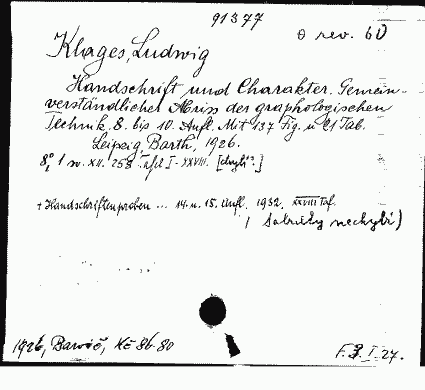 91377
o rev. 60
Klages, Ludwig
Handschrift und Charakter. Gemein-
verständlicher Abriss der graphologischen
Technik. 8. bis 10. Aufl. Mit 137 Fig. u. 21 Tab.
Leipzig, Barth, 1926.
8°, 1 sv. XII. 258 Tafel I-XXVIII.
+ Handschriftenproben ... 14. u. 15. Aufl. 1932. XXVIII Taf.
nechybí)
1926, Barvič, Kč 86.80
F. 3. I. 27.